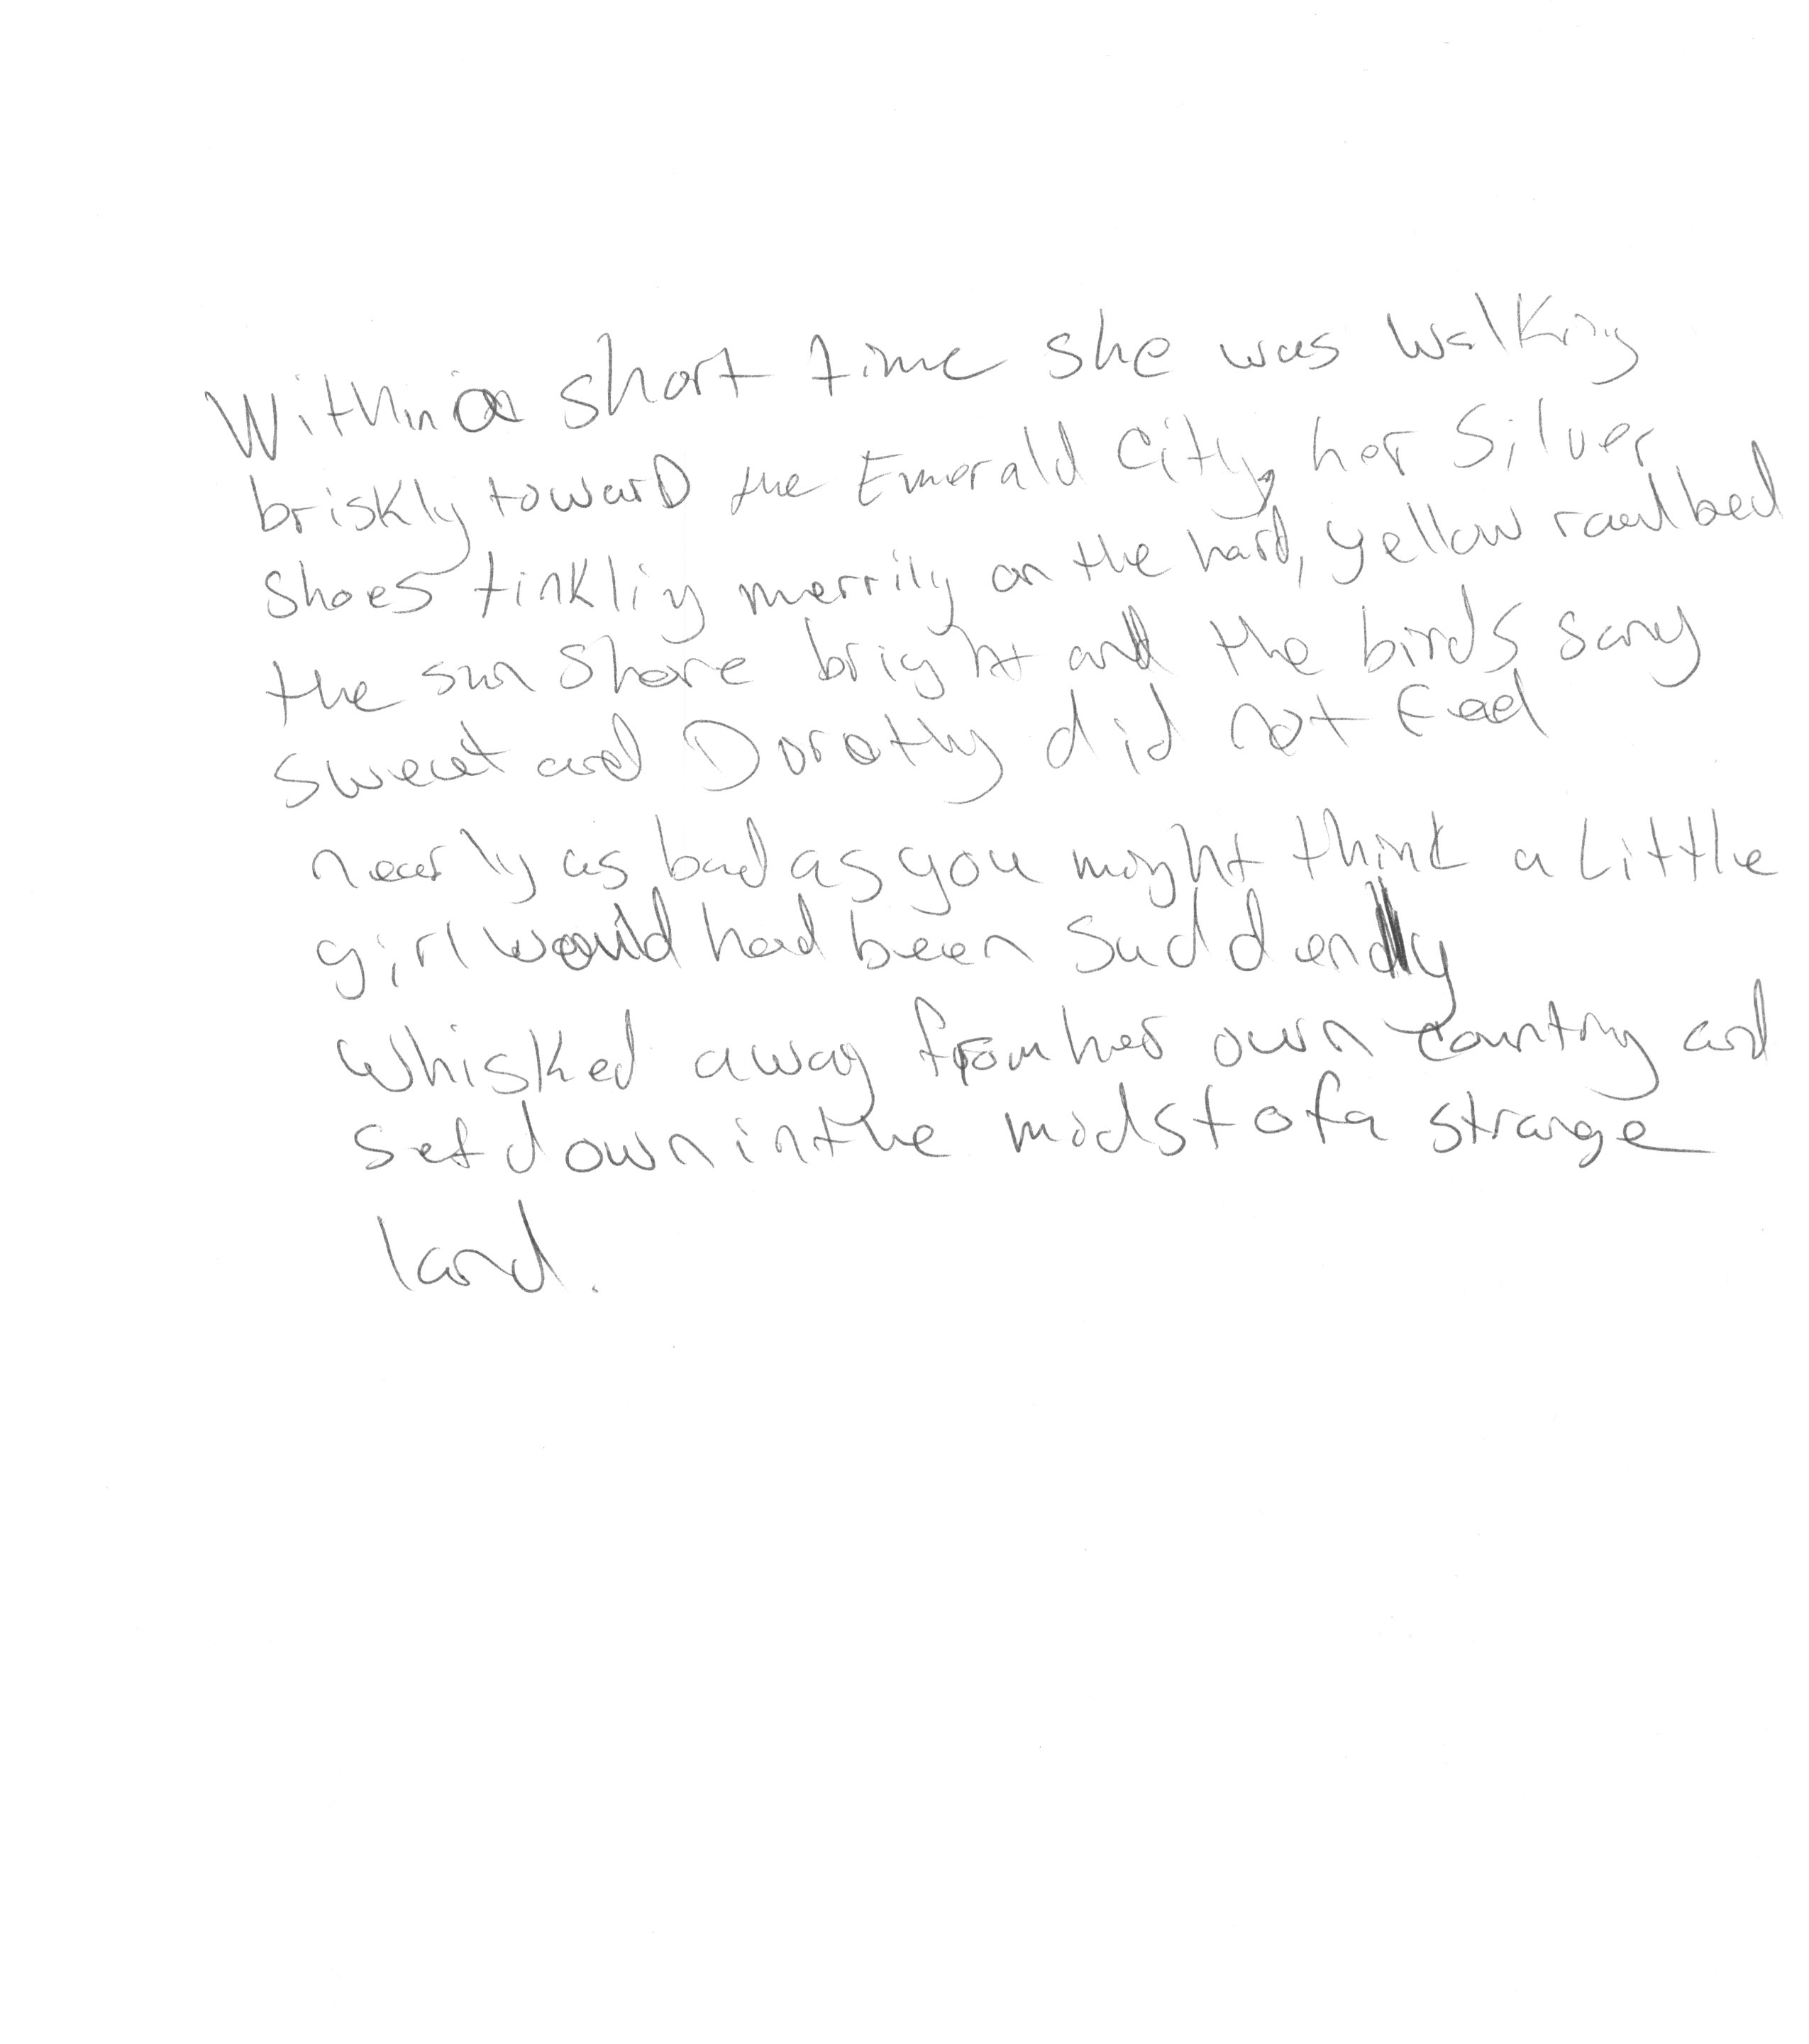 Within a short time she was walking
briskly toward the Emerald City, her Silver
Shoes tinkling merrily on the hard, yellow roadbed
the sun shone bright and the birds sang
sweet and Dorothy did not feel
nearly as bad as you might think a little
girl would had been suddenly
whisked away from her own country and
set down in the midst of a strange
land.